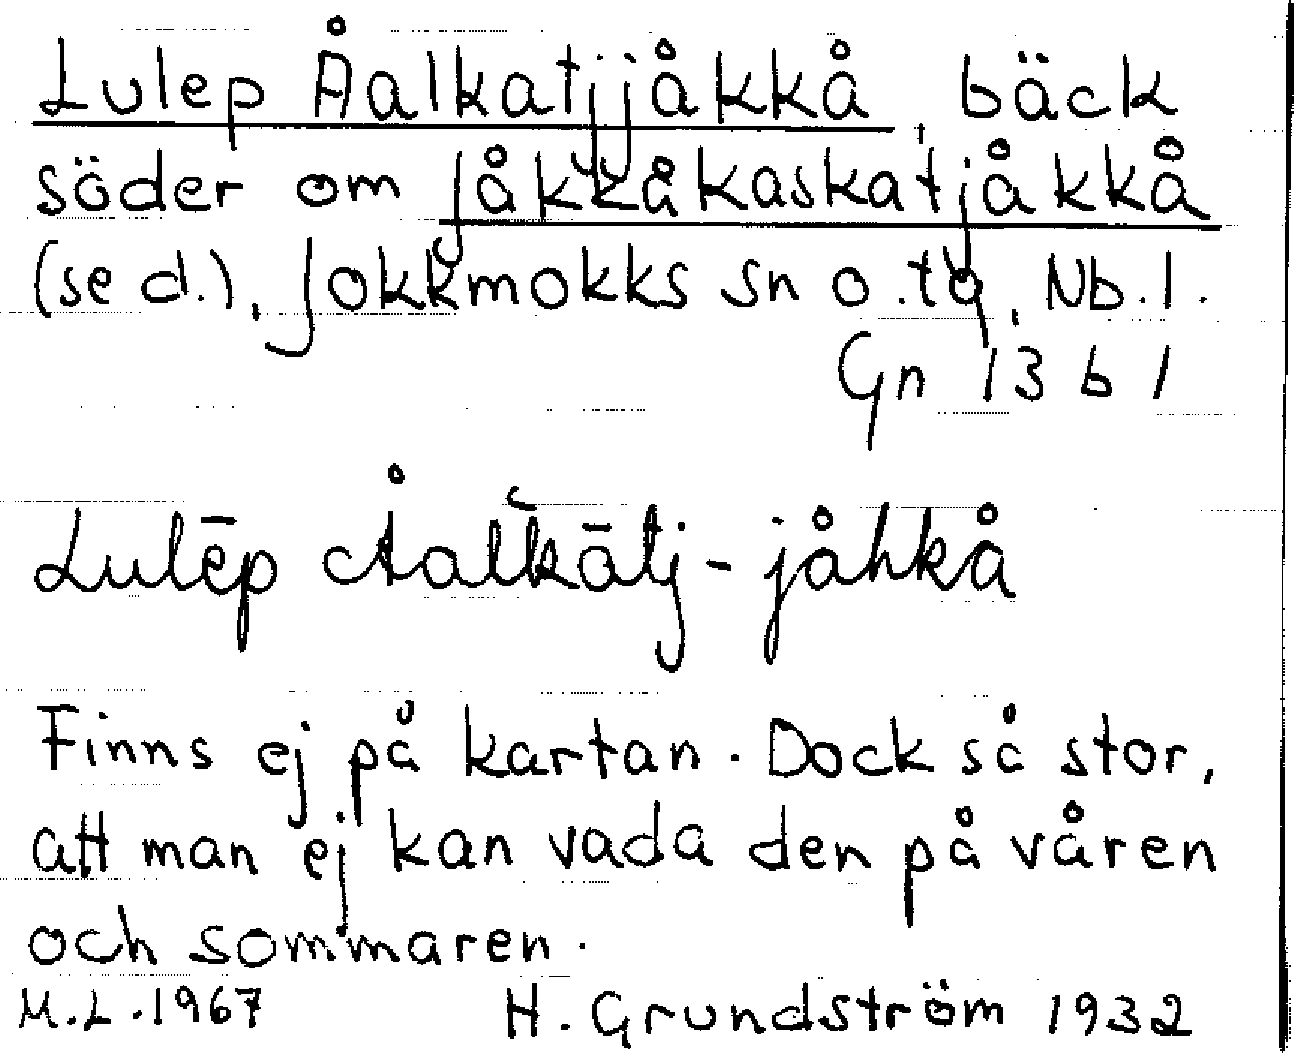 Lulep Åalkatjjåkkå, bäck
söder om Jåkkåkaskatjåkkå
(se d.), Jokkmokks sn o. tg, Nb. l.
Gn 13 b 1
Lulēp Åalk̆ātj-jåhkå
Finns ej på kartan. Dock så stor,
att man ej kan vada den på våren
och sommaren.
M.L. 1967 H. Grundström 1932